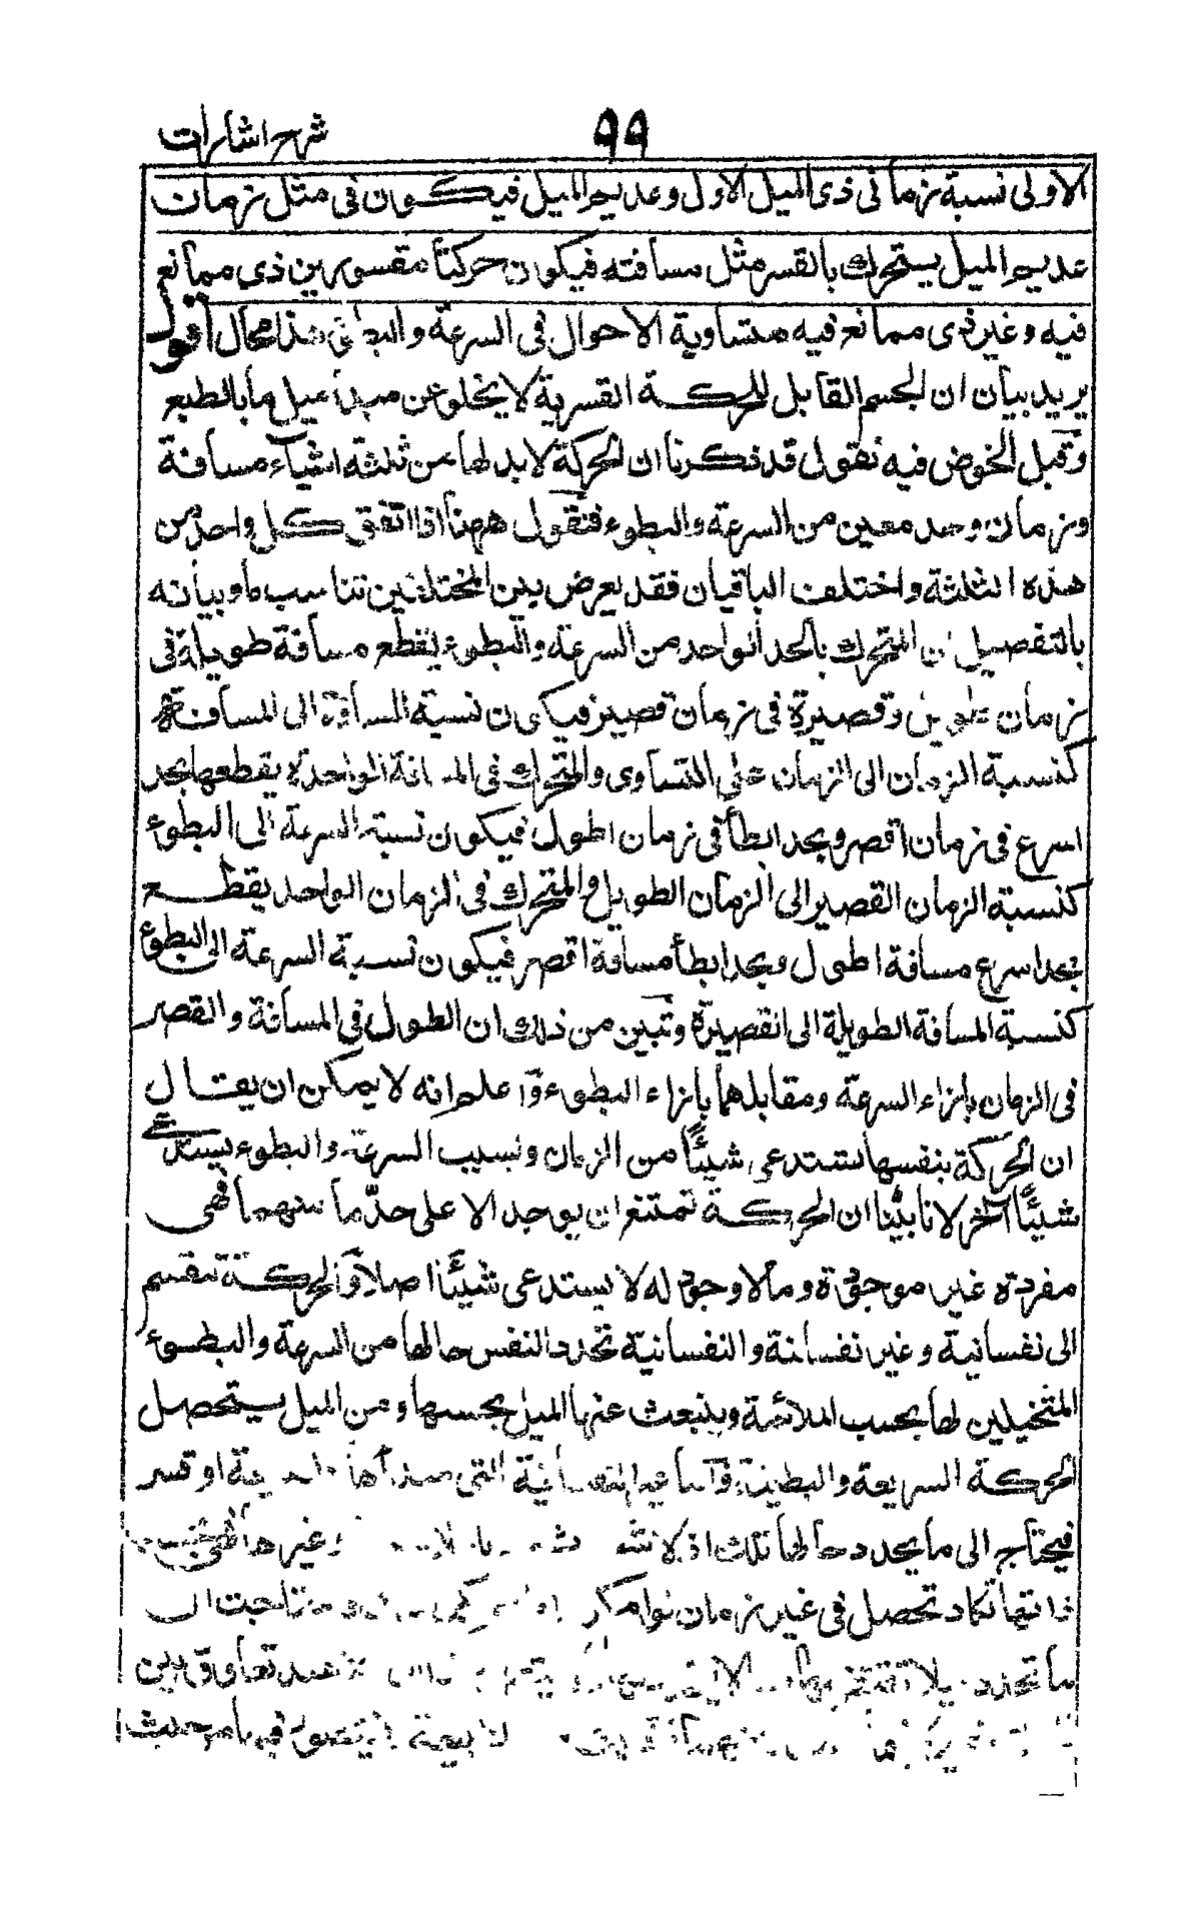 ٩٩ شرح اشارات
الاولى نسبة زماني ذى الميل الاول وعديم الميل فيكون فى مثل زمان
عديم الميل يتحرك بالقسر مثل مسافته فيكون حركتا مقسورين ذى ممانع
فيه وغير ذى ممانع فيه متساوية الاحوال فى السرعة والبطء هذا محال اقول
يريد بيان ان الجسم القابل للحركة القسرية لا يخلو عن مبدأ ميل ما بالطبع
وقبل الخوض فيه نقول قد ذكرنا ان الحركة لابد لها من ثلثة اشياء مسافة
وزمان وحد معين من السرعة والبطوء فنقول ههنا اذا اتفق كل واحد من
هذه الثلثة واختلف الباقيان فقد يعرض بين المختلفين تناسب ما وبيانه
بالتفصيل ان المتحرك بالحد الواحد من السرعة والبطوء يقطع مسافة طويلة فى
زمان طويل وقصيرة فى زمان قصير فيكون نسبة المسافة الى المسافة
كنسبة الزمان الى الزمان على التساوى والمتحرك فى المسافة الواحدة يقطعها بحد
اسرع فى زمان اقصر وبحد ابطأ فى زمان اطول فيكون نسبة السرعة الى البطوء
كنسبة الزمان القصير الى الزمان الطويل والمتحرك فى الزمان الواحد يقطع
بحد اسرع مسافة اطول وبحد ابطأ مسافة اقصر فيكون نسبة السرعة الى البطوء
كنسبة المسافة الطويلة الى القصيرة وتبين من ذلك ان الطول فى المسافة والقصر
فى الزمان بازاء السرعة ومقابلهما بازاء البطوء واعلم انه لا يمكن ان يقال
ان الحركة بنفسها تستدعى شيئًا من الزمان وبسبب السرعة والبطوء يستدعى
شيئًا آخر لانا بيّنا ان الحركة تمتنع ان يوجد الا على حدّ ما منهما فهى
مفردة غير موجودة وما لا وجود له لا يستدعى شيئًا اصلا والحركة تنقسم
الى نفسانية وغير نفسانية والنفسانية تحدد النفس حالها من السرعة والبطوء
المتخيلين لها بحسب الملائمة وينبعث عنها الميل بحسبها ومن الميل يتحصل
الحركة السريعة والبطيئة واما غير النفسانية التى مبدأها طبيعة او قسر
فيحتاج الى ما يحدد حالها تلك اذ لا وغيرها فهى بحسب
ذاتها تكاد تحصل فى غير زمان لو امكن فاحتاجت الى
ما تحدد تعاوق بين
طبيعة لا يتصور فيها من حيث